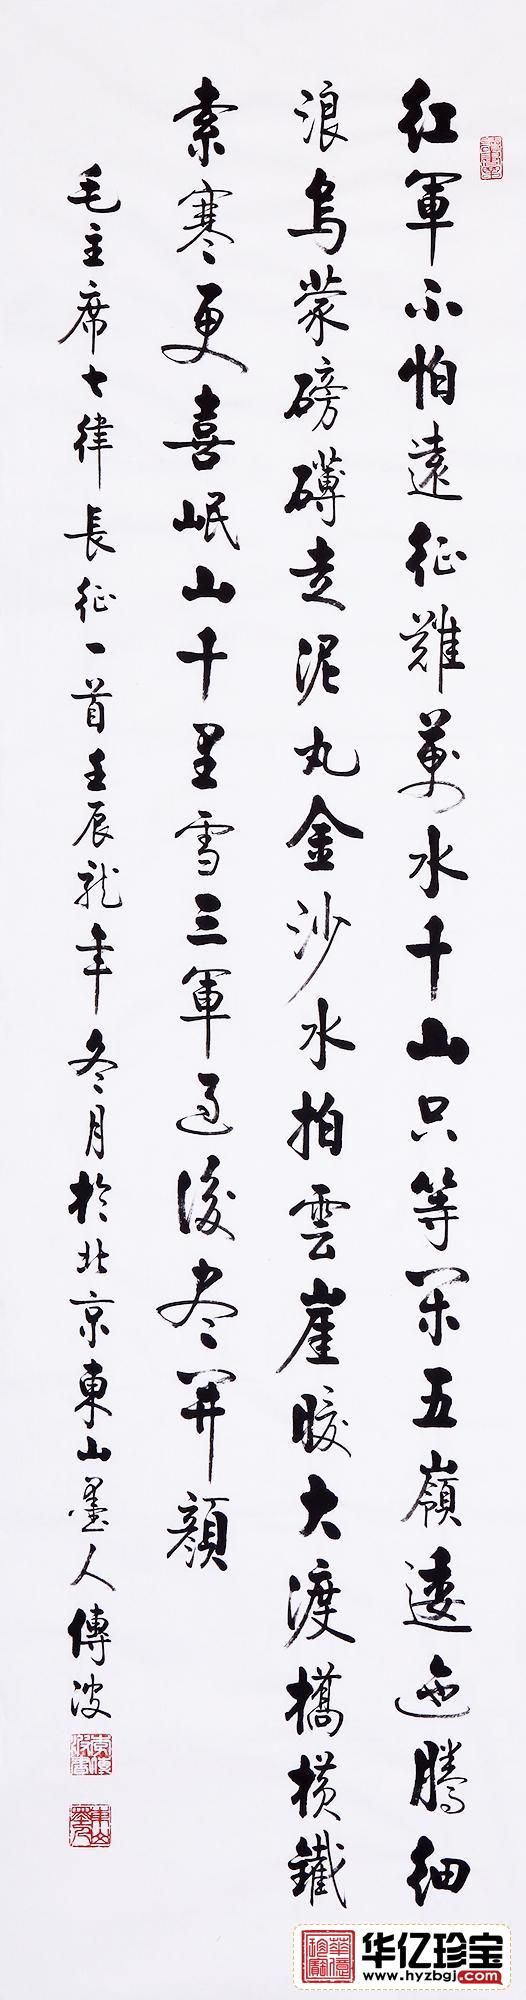 紅軍不怕遠征難萬水千山只等闲五嶺逶迤騰細
浪烏蒙磅礴走泥丸金沙水拍雲崖暖大渡橋横鐵
索寒更喜岷山千里雪三軍过後尽开顔
毛主席七律長征一首壬辰龙年冬月於北京東山墨人傳波
东山墨人
华亿珍宝
www.hyzbgj.com